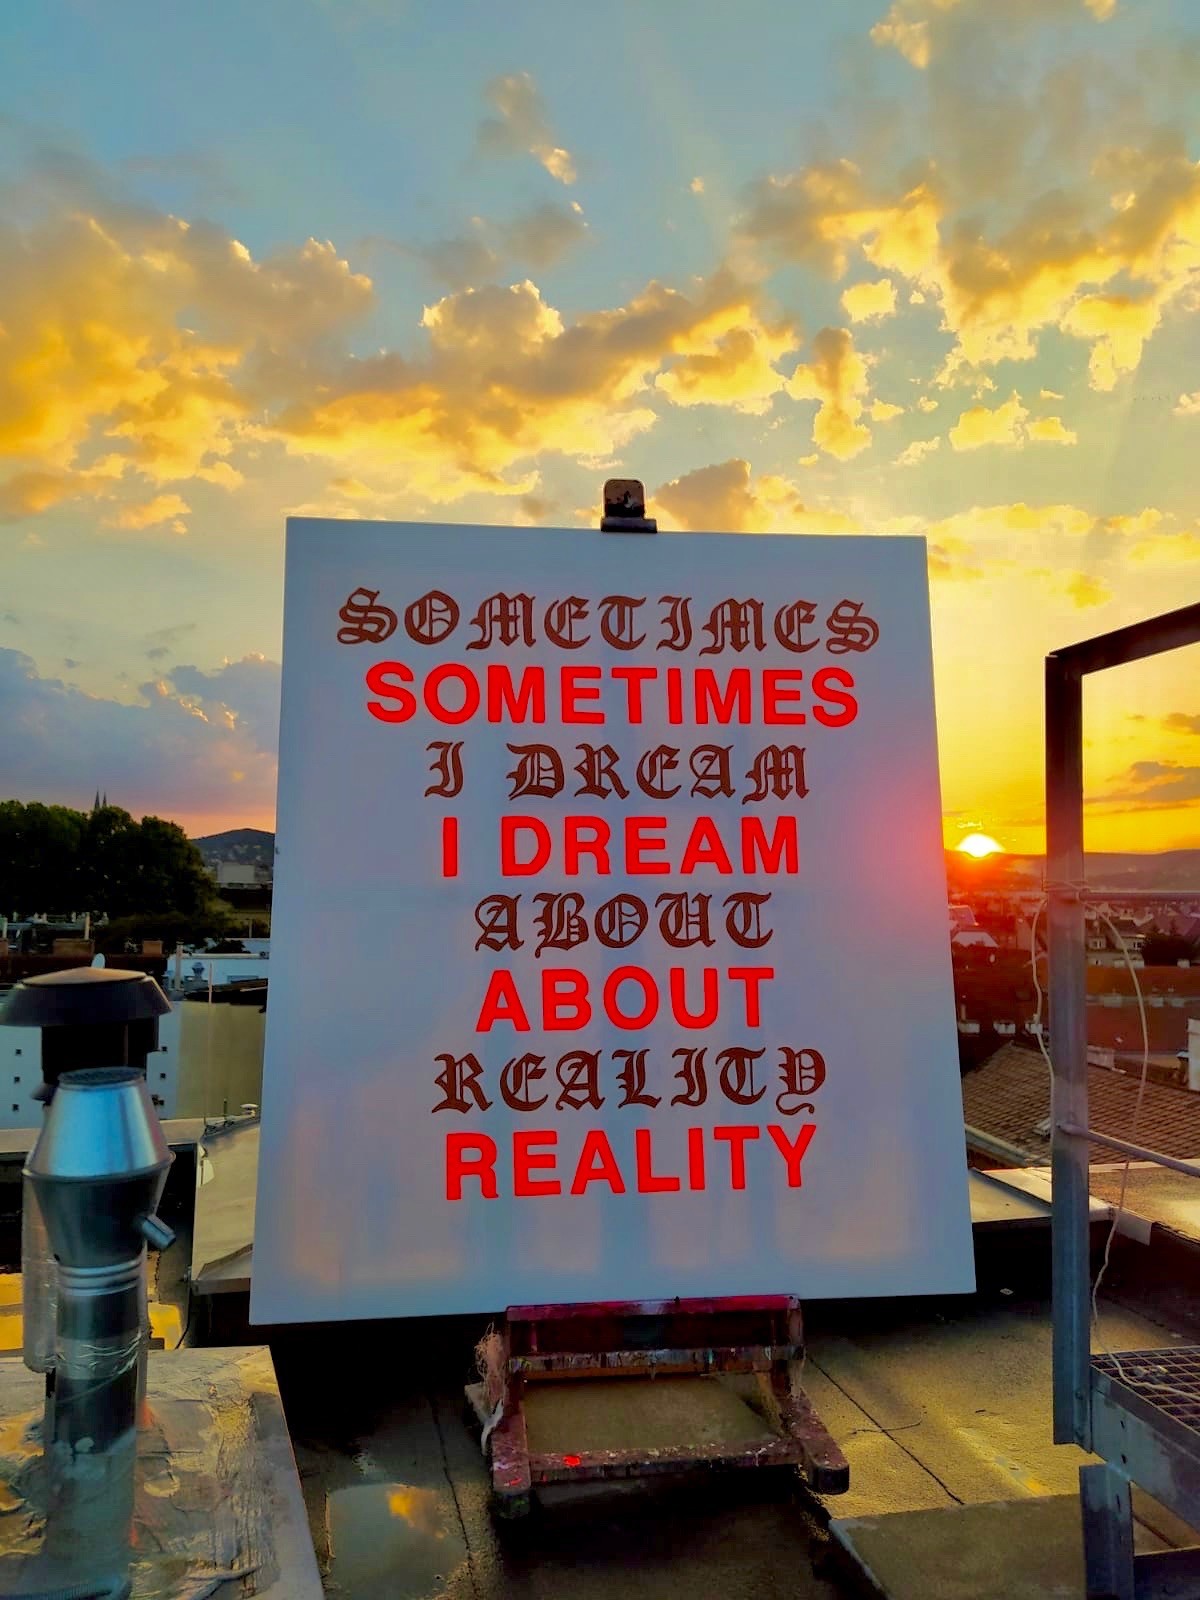 SOMETIMES
SOMETIMES
I DREAM
I DREAM
ABOUT
ABOUT
REALITY
REALITY